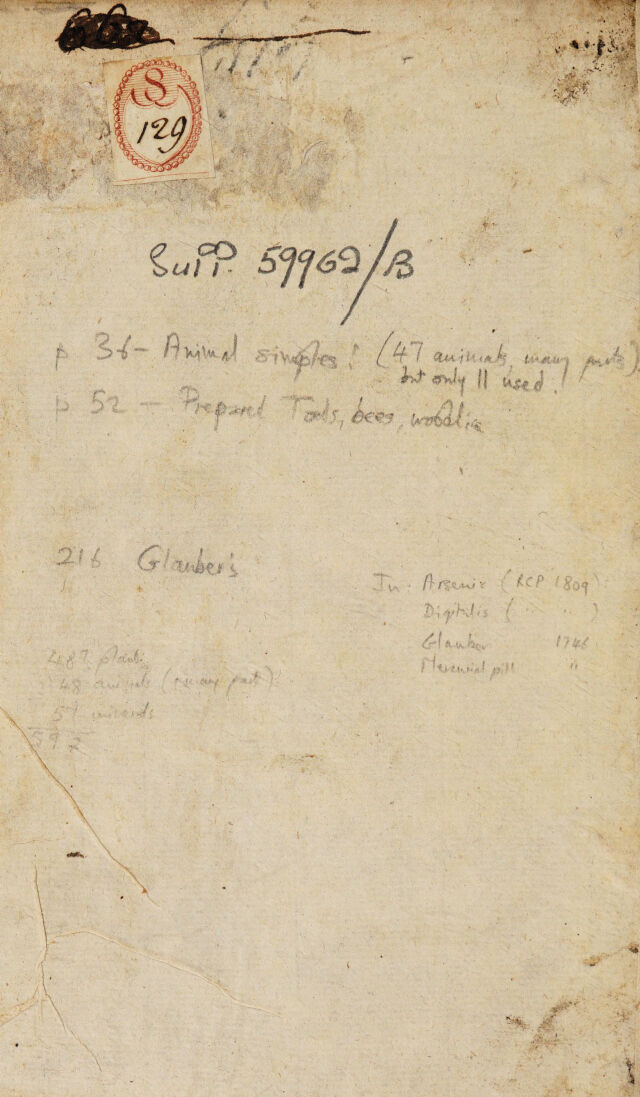 S
129
Supp. 59962/B
p 36 - Animal simples! (47 animals, many parts)
but only 11 used!
p 52 - Prepared Toads, bees, woodlice
216 Glauber's
In: Arsenic (RCP 1809)
Digitalis ( .. .. )
Glauber 1746
Mercurial pill "
487 plants
48 animals (many parts)
57 minerals
592